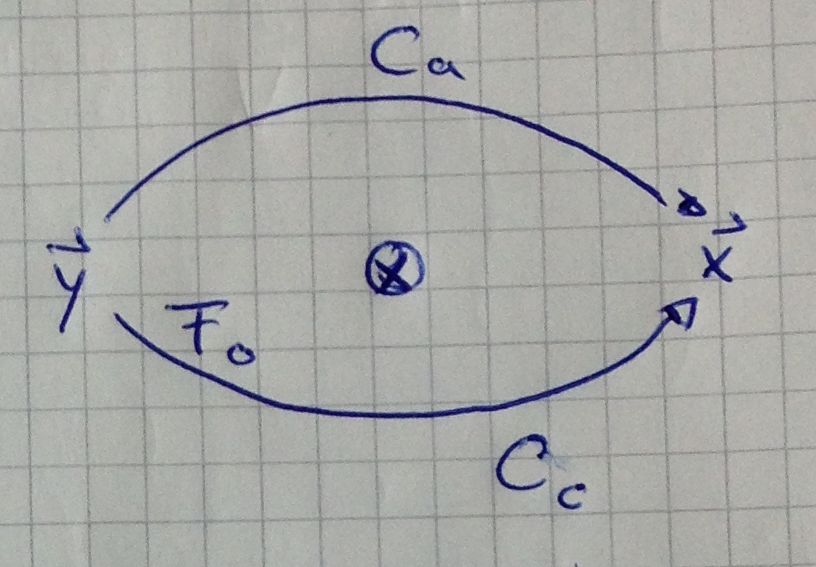 C_a
y⃗
⊗
x⃗
F_o
C_c